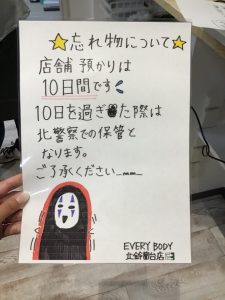 忘れ物について
店舗 預かりは
10日間です
10日を過ぎた際は
北警察での保管と
なります。
ご了承ください
EVERY BODY
鈴蘭台店